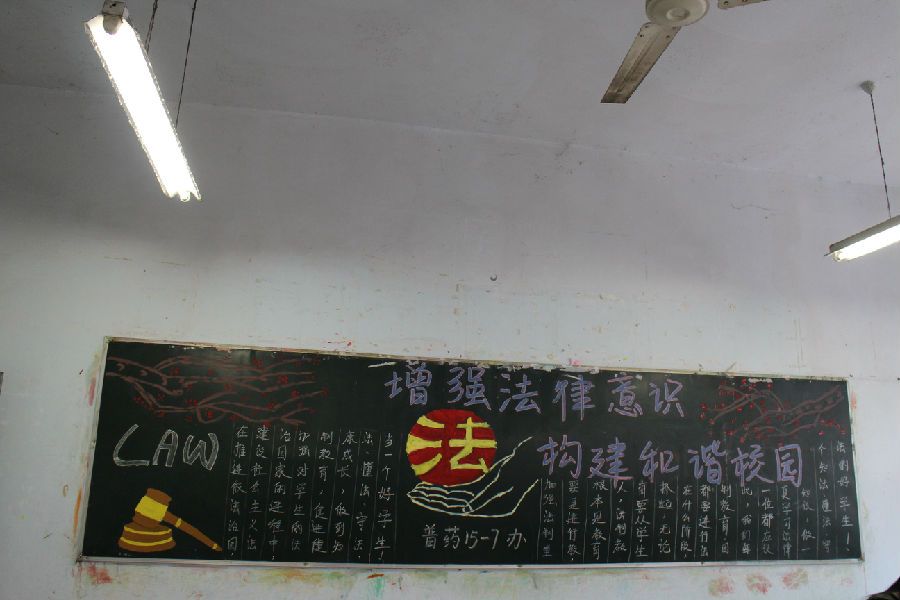 增强法律意识
构建和谐校园
LAW
在推进依法治国
建设社会主义法
治国家的进程中,
加强对学生的法
制教育,促进健
康成长,做到知
法、懂法、守法、
当一个好学生!
法
普药15-7办
加强法制
根本是教育
人,法制教
育要从学生
抓起,无论
在什么阶段
都要进行法
制教育,因
此,我们
一位都应认
真学习法律
知识,做一
个知法懂法守
法的好学生!